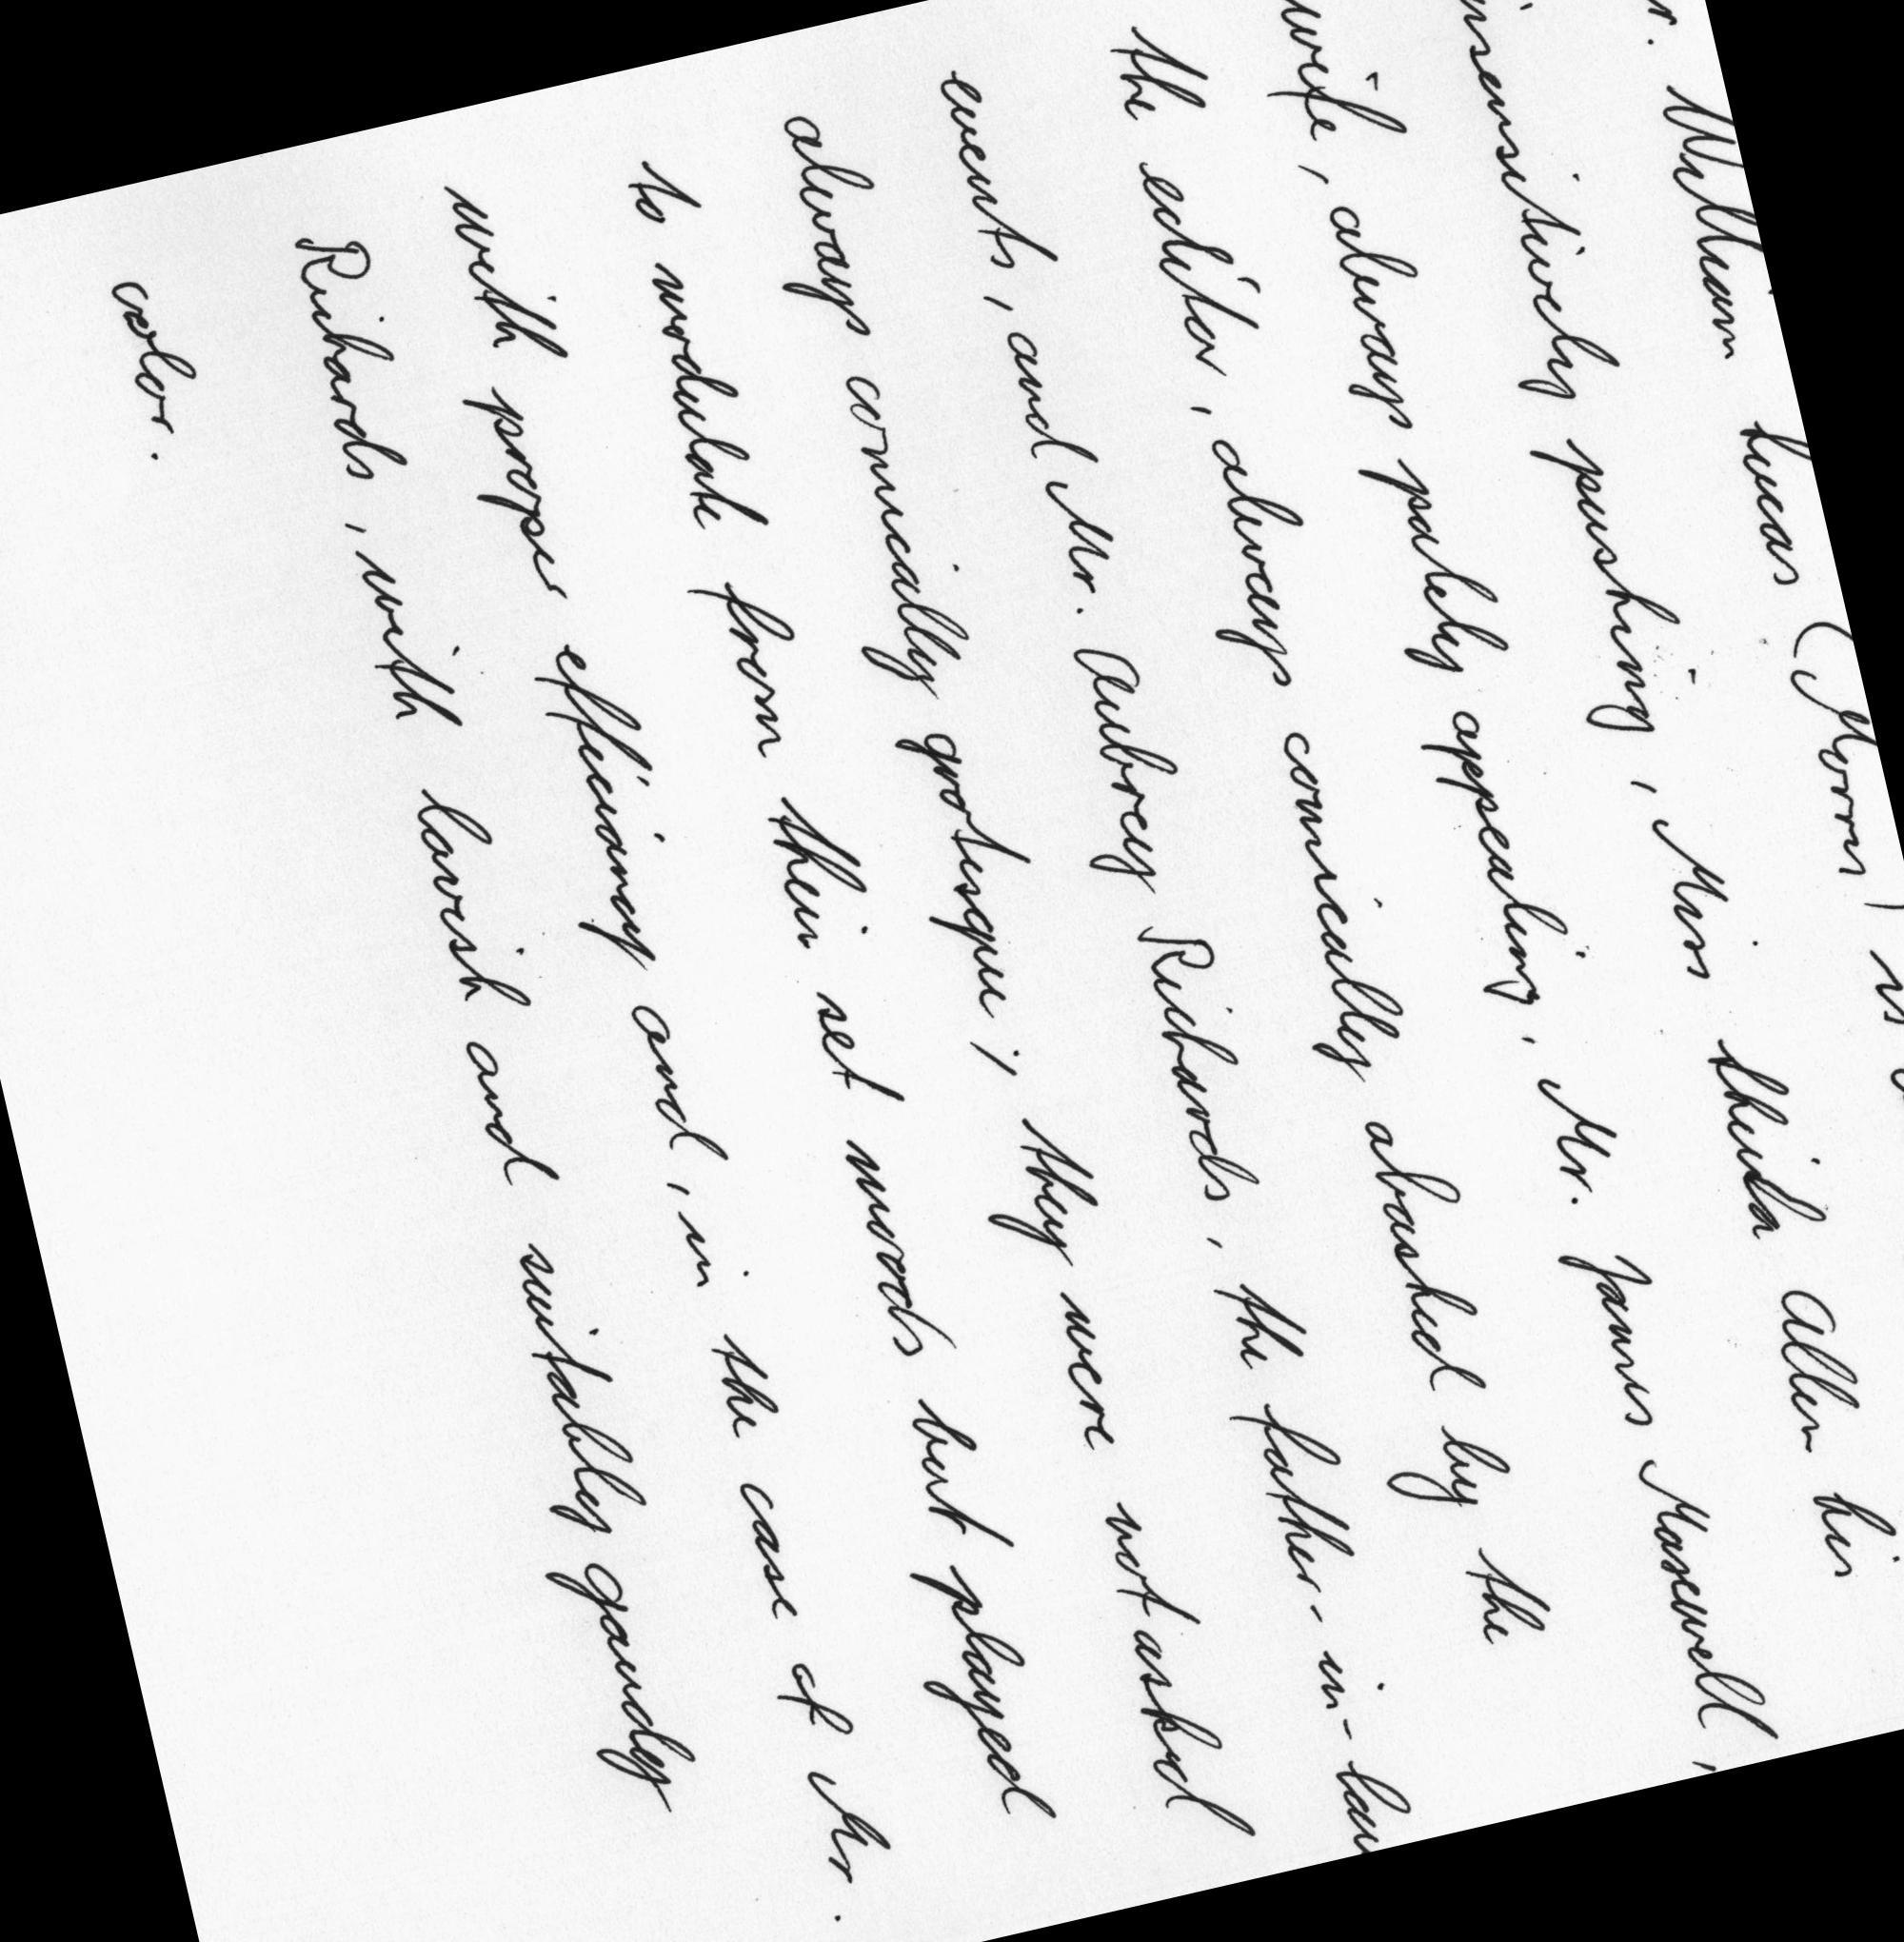 r. William Lucas (Morris) is
insensitively pushing, Miss Sheila Allen his
wife, always palely appealing, Mr. James Maxwell,
the editor, always comically abashed by the
events, and Mr. Aubrey Richards, the father-in-law
always comically grotesque; they were not asked
to modulate from their set moods but played
with proper efficiency and, in the case of Mr.
Richards, with lavish and suitably gaudy
color.